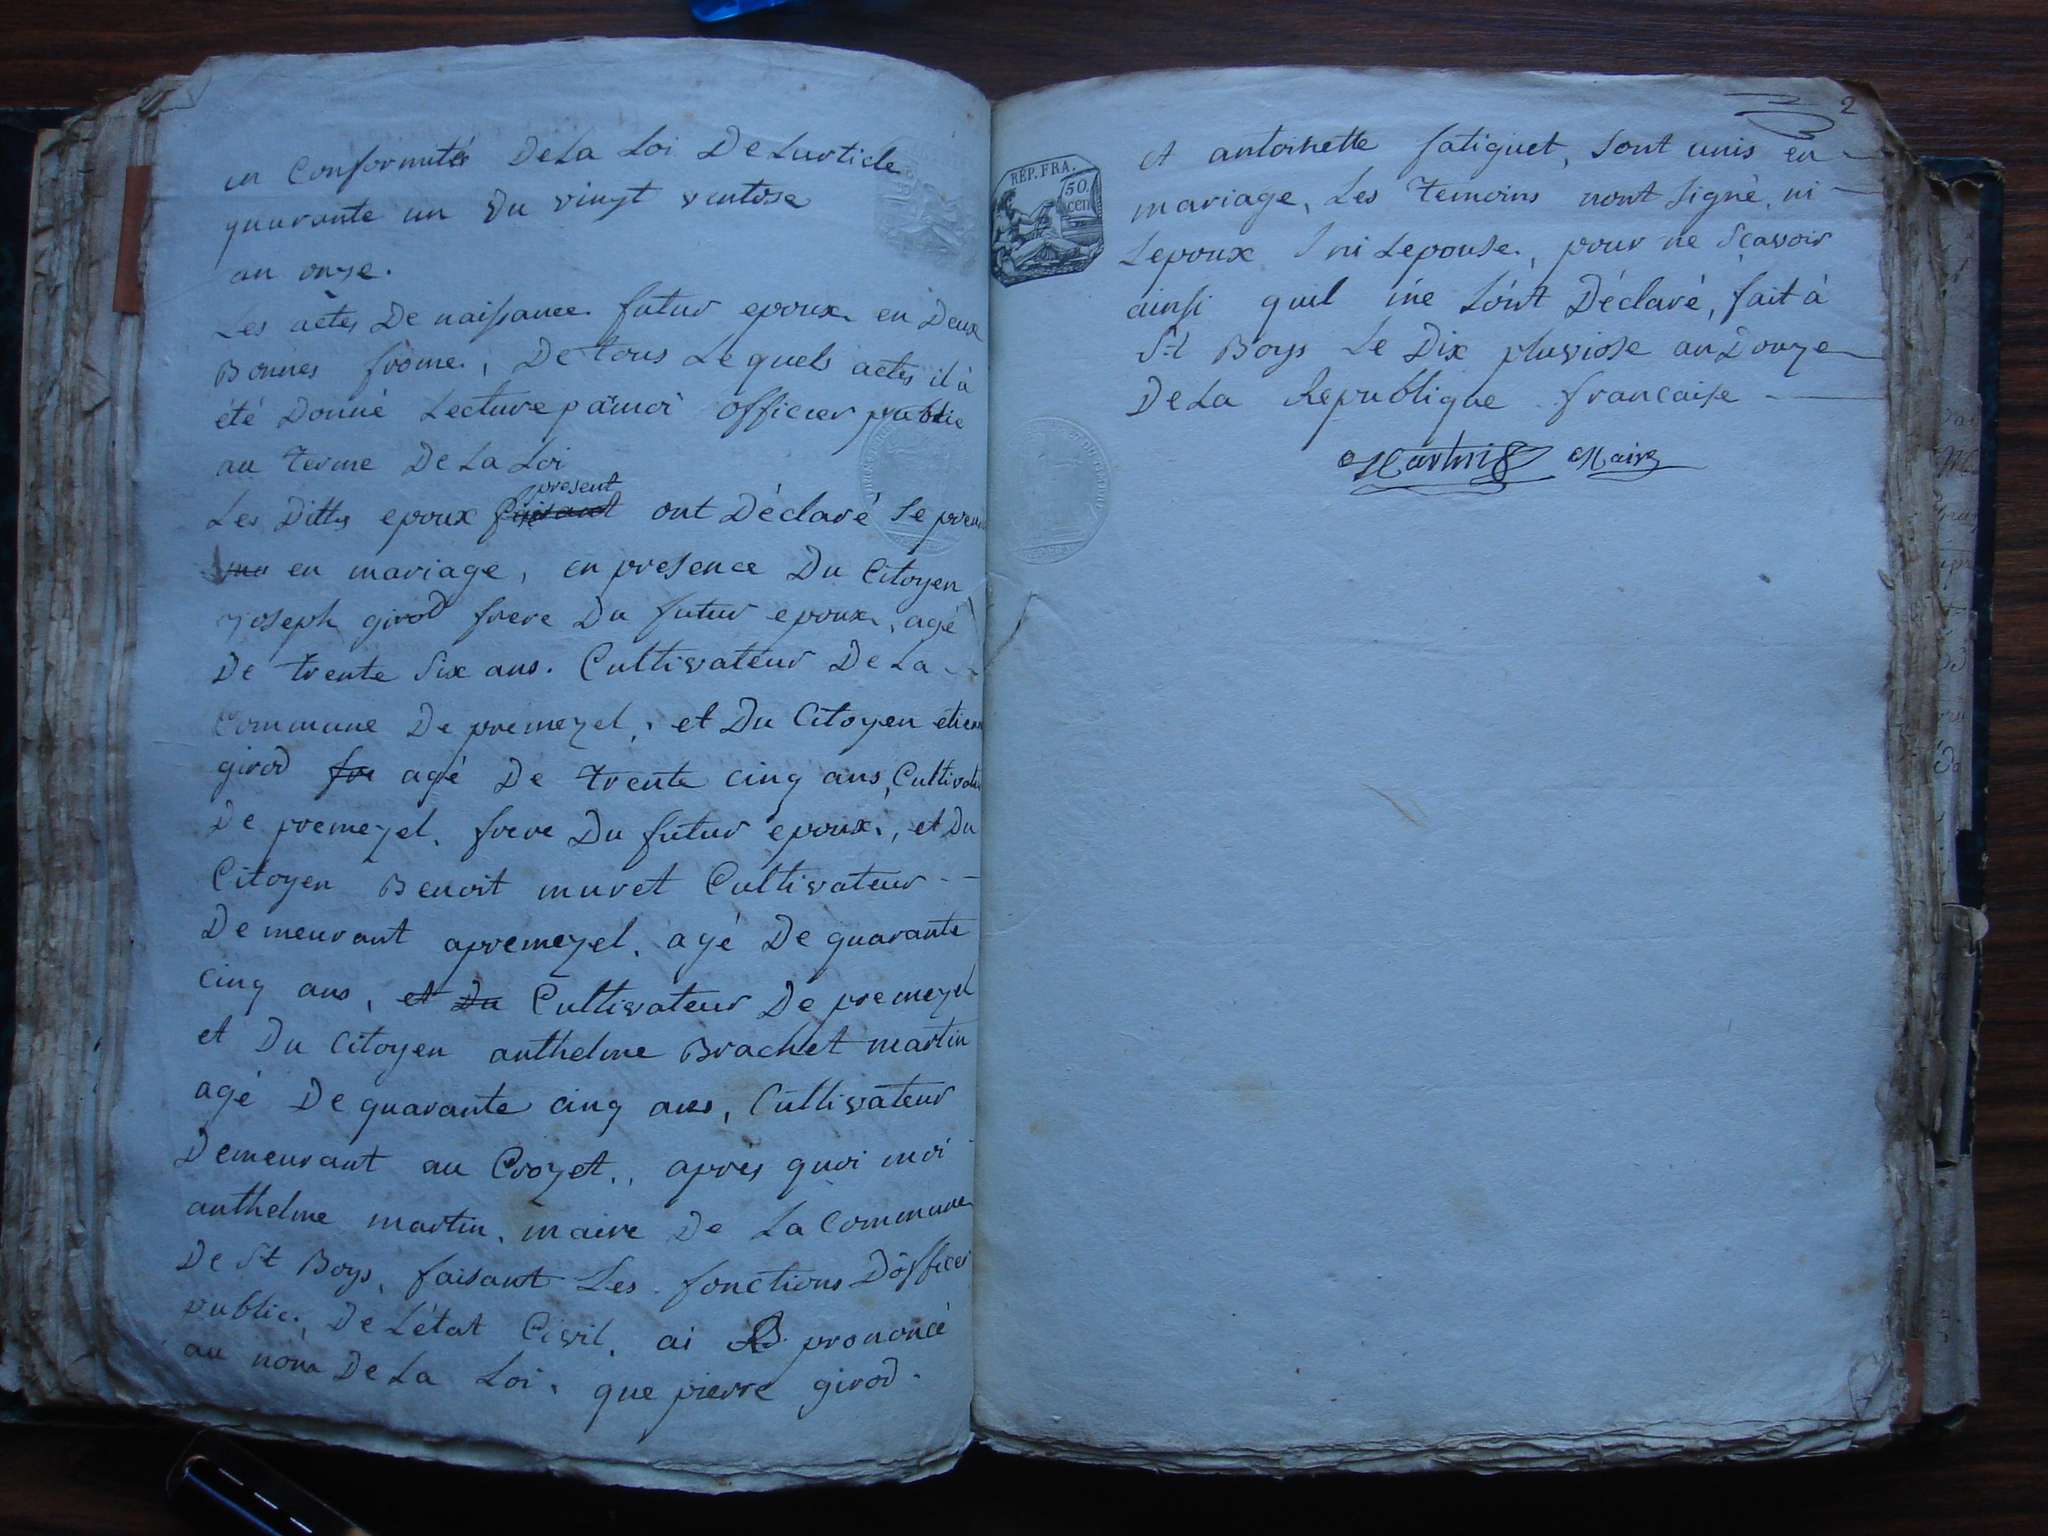 en Conformités De La Loi De Larticle
quarante un Du vingt ventose
an onze.
Les actes De naissance futur epoux en Deux
Bonnes frome, De tous Lequels actes il à
été Donné Lecture parmoi officier public
au terme De La Loi
present
Les Dittes epoux ont Déclaré Se
en mariage, en presence Du Citoyen
joseph girod frere Du futur epoux, agé
De trente Six ans. Cultivateur De La
Commune De premezel, et Du Citoyen
girod agé De trente cinq ans, Cultivateur
De premezel, frere Du futur epoux, et Du
Citoyen Benoit muret Cultivateur
Demeurant apremezel, agé De quarante
cinq ans, et Du Cultivateur De premezel
et Du Citoyen anthelme Brachet martin
agé De quarante cinq ans, Cultivateur
Demeurant au Crozet, après quoi moi
anthelme martin, maire De La Commune
De St Boys, faisant Les fonctions Dofficer
public, De Létat Civil, ai prononcé
au nom De La Loi, que pierre girod
2
REP. FRA.
50
cen
et antoinette fatiguet, Sont unis en
mariage, Les temoins nont Signé, ni
Lepoux ni Lepouse, pour ne Scavoir
ainsi quil me Sont Déclaré, fait à
St Boys Le Dix pluviose an Douze
De La Republique francaise
Martin Maire